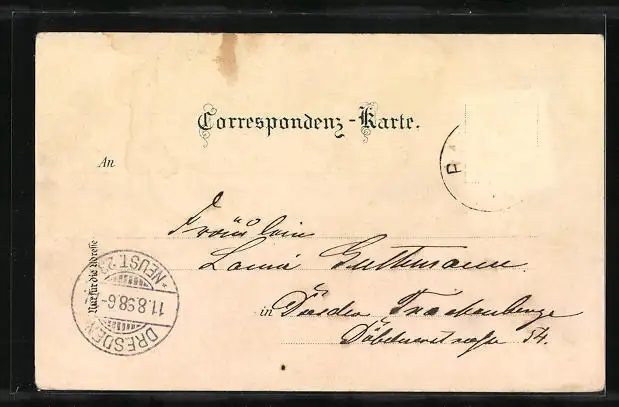 Correspondenz-Karte.
An
Fräulein
Guthmann
in Dresden Trachenberge
Döbelnerstrasse 54.
Nur für die Adresse
DRESDEN
11.8.98.6-
*NEUST.